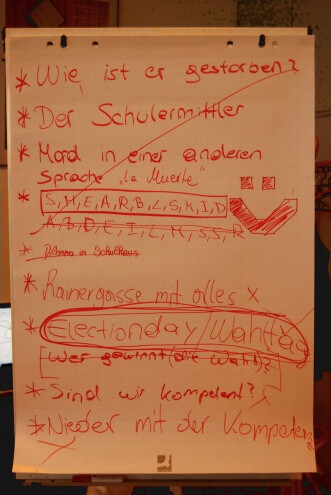 * Wie ist er gestorben?
* Der Schulermittler
* Mord in einer anderen
Sprache "la Muerte"
* S, H, E, A, R, B, L, S, M, I, D
A, B, D, E, I, L, M, S, S, R
* in Schulhaus
* Rainergasse mit olles X
* Electionday/Wahltag
Wer gewinnt (die Wahl)?
* Sind wir kompetent?
* Nieder mit der Kompetenz